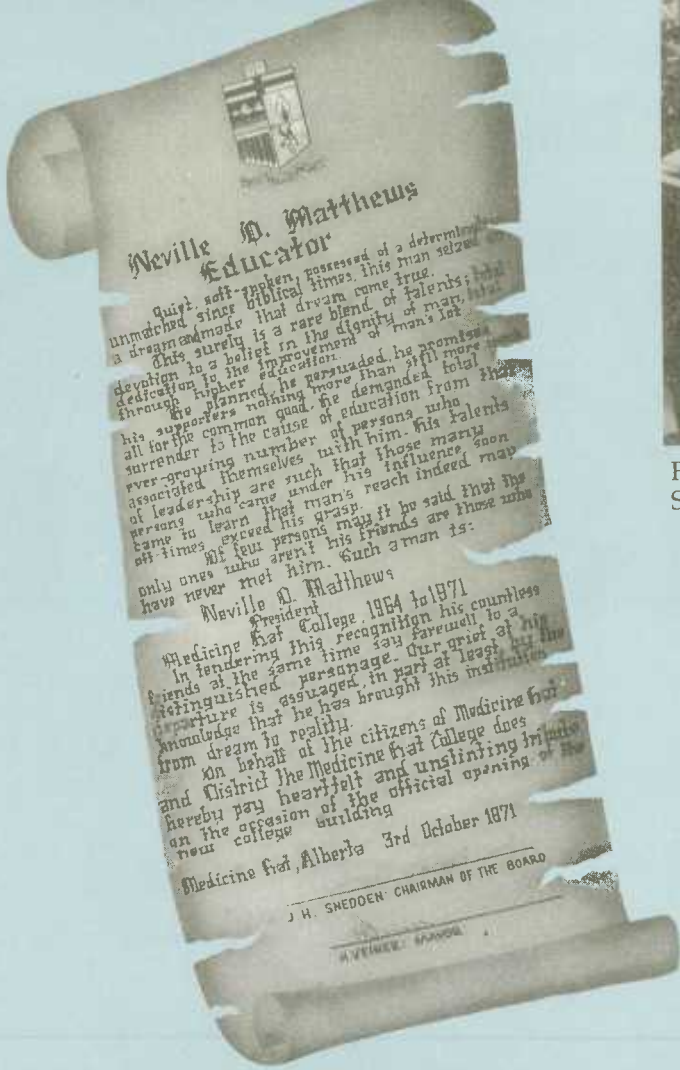 Neville D. Matthews
Educator
Quiet, soft-spoken, possessed of a determination
unmatched since biblical times, this man seized on
a dream and made that dream come true.
This surely is a rare blend of talents; total
devotion to a belief in the dignity of man, total
dedication to the improvement of man's lot
through higher education.
He planned, he persuaded, he promised
his supporters nothing more than still more work
all for the common good. He demanded total
surrender to the cause of education from that
ever-growing number of persons who
associated themselves with him. His talents
of leadership are such that those many
persons who came under his influence soon
came to learn that man's reach indeed may
oft-times exceed his grasp.
Of few persons may it be said that the
only ones who aren't his friends are those who
have never met him. Such a man is:
Neville D. Matthews
President
Medicine Hat College, 1964 to 1971
In tendering this recognition his countless
friends at the same time say farewell to a
distinguished personage. Our grief at his
departure is assuaged, in part at least, by the
knowledge that he has brought this institution
from dream to reality.
On behalf of the citizens of Medicine Hat
and District the Medicine Hat College does
hereby pay heartfelt and unstinting tribute
on the occasion of the official opening of the
new college building
Medicine Hat, Alberta 3rd October 1971
J H. SNEDDEN: CHAIRMAN OF THE BOARD
H. VEINER: MAYOR